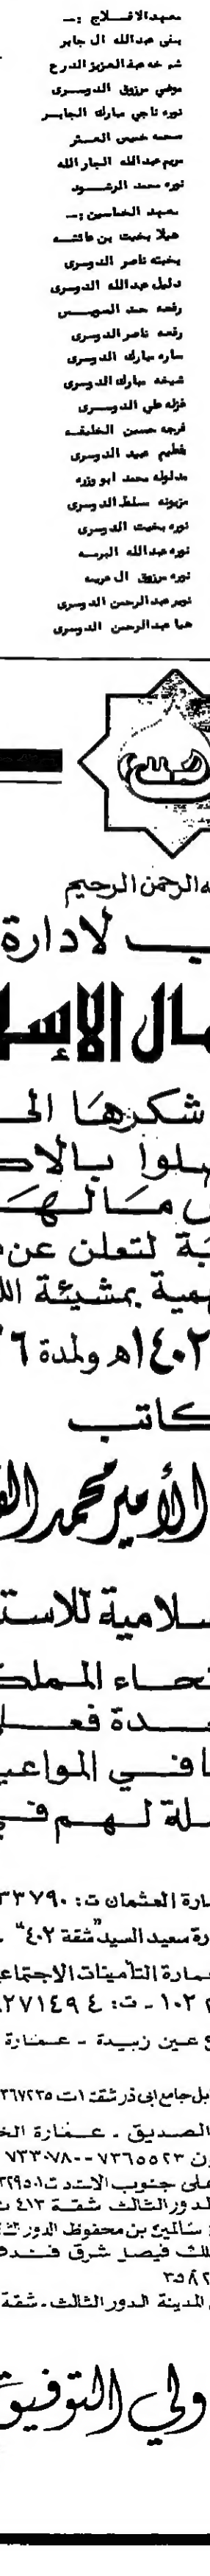 معهد الافلاج :ـ
بنى عبدالله ال جابر
شمخه عبدالعزيز الدرع
موضي مرزوق الدوسرى
نوره ناجي مبارك الجابر
محمد خميس العمر
مريم عبدالله الجارالله
نوره محمد الرشود
معهد الخماسين :ـ
هيلا بخيت بن عائشه
بخيته ناصر الدوسرى
دليل عبدالله الدوسرى
رفعه حمد
رفعه ناصر الدوسرى
ساره مبارك الدوسرى
شيخه مبارك الدوسرى
غزله علي الدوسرى
فرجه حسين الخليفه
فطيم عبيد الدوسرى
مدلوله محمد ابو وزره
مزيونه سلطا الدوسرى
نوره بخيت الدوسرى
نوره عبدالله
نوره مرزوق ال عريمه
نوير عبدالرحمن الدوسرى
هيا عبدالرحمن الدوسرى
ه الرحمن الرحيم
ب لادارة
ال الإسلا
شكرها الى
صلوا بالاك
مالها
بة لتعلن عن
همية بمشيئة الله
١٤٠٢هـ ولمدة ٦
كاتب
الأمير محمد الف
سلامية للاست
نحاء المملك
دة فعل
ا في المواعي
لة لهم في
ارة العثمان ت: ٣٣٧٩٠
رة سعيد السيد "شقة ٤٠٢"
عمارة التأمينات الاجتماعي
١٠٢ ـ ت: ٨٢٧١٤٩٤
ع عين زبيدة ـ عمارة
بل جامع ابى ذر شقة ١ ت ٣٦٧٢٣٥
الصديق ـ عمارة الخ
ون ٧٣٦٥٥٢٣ ـ ٧٣٣٠٧٨٠
على جنوب الاستد ت ٣٢٩٥٠١
لدور الثالث شقة ٤١٣ ت
سالم بن محفوظ الدور الثا
لك فيصل شرق فندق
٣٥٨٢
المدينة الدور الثالث ـ شقة
ولي التوفيق